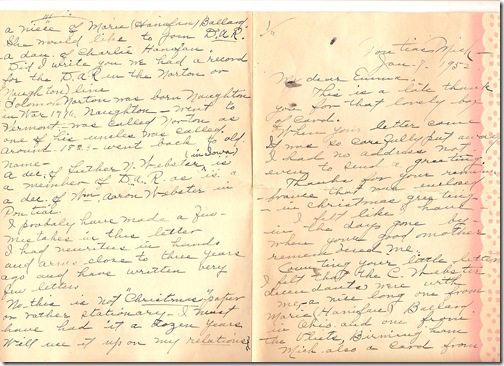 a niece of Marie (Hanafan) Ballard
She would like to join D.A.R.
a dau. of Charlie Hanafan.
Did I write you we had a record
for the D.A.R in the Norton or
Naughton line
Solomon Norton was born Naughton
in War 1776. Naughton - went to
Vermont was called Norton as
one of his uncles was called.
Around 1823 - went back to old
name -
A dec. of Luther N. Webster (in Iowa) is
a member of D.A.R. as is a
a dec. of Wm Aaron Webster in
Pontiac.
I probably have made a few
mistakes in this letter
I had neuritis in hands
and arms close to three years
ago and have written very
few letters
No this is not "Christmas" paper
or rather stationary - I must
have had it a dozen years
Will use it up on my relations
Pontiac Mich -
Jan - 9. 1952
My dear Emma.
This is a late thank
you for that lovely box
of cards.
When your letter came
it was so carefully put away
I had no address not
even to send a greeting.
Thanks for your remem-
brance that was enclosed
- in Christmas greeting -
I felt like I had
- in the days gone by -
when your good mother
remembered me.
Counting your little letter
I felt that the C. Webster
descendants were with
me, a nice long one from
Marie (Hanafan) Ballard
in Ohio and one from
Birmingham
Mich. also a card from